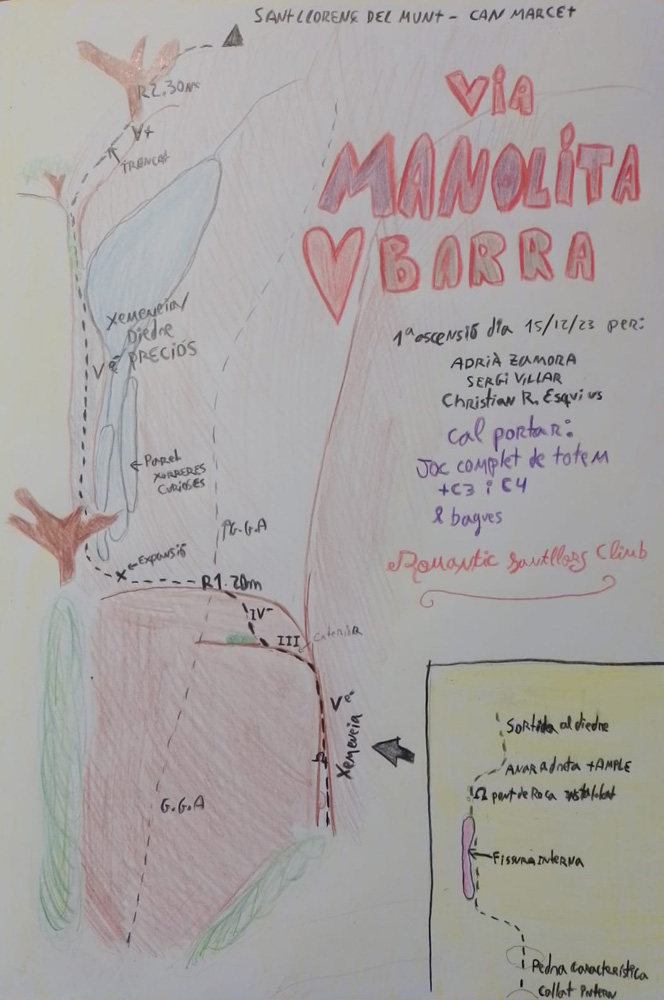 SANT LLORENÇ DEL MUNT - CAN MARCET
R2.30m
V+
TRENCAT
VIA
MANOLITA
BARRA
1ª ascensió dia 15/12/23 per:
ADRIÀ ZAMORA
SERGI VILLAR
Christian R. Esquius
Cal portar:
Joc complet de totem
+C3 i C4
& bagues
Romantic Santllors Climb
Xemeneia/
Diedre
PRECIÓS
Vº
Paret
XORRERES
CURIOSES
G.G.A
X ← Expansió
R1.20m
IV-
III
Vº
Xemeneia
G.G.A
Sortida al diedre
ANAR A dreta + AMPLE
pont de Roca instal·lat
Fissura interna
Pedra característica
collat